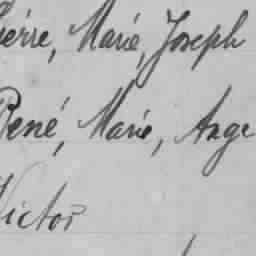 Pierre, Marie, Joseph
René, Marie, Ange
Victor